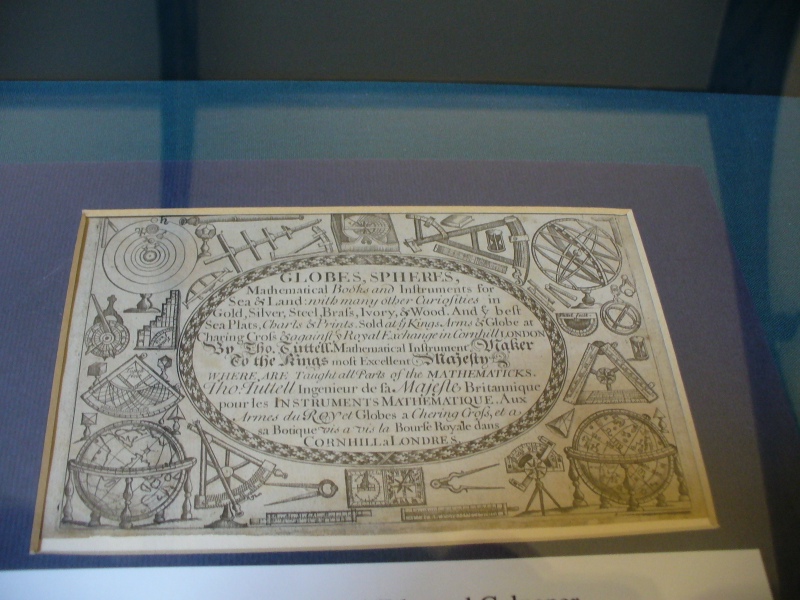 GLOBES, SPHERES,
Mathematical Books and Instruments for
Sea & Land: with many other Curiosities in
Gold, Silver, Steel, Braſs, Ivory, & Wood. And yͤ beſt
Sea Plats, Charts & Prints. Sold at yͤ Kings Arms & Globe at
Charing Croſs & againſt yͤ Royal Exchange in Cornhill LONDON
By Tho. Tuttell Mathematical Instrument Maker
To the Kings moſt Excellent Majesty
WHERE ARE Taught all Parts of the MATHEMATICKS.
Tho. Tuttell Ingenieur de ſa Majeſte Britannique
pour les INSTRUMENTS MATHEMATIQUE. Aux
Armes du ROY et Globes a Chering Croſs, et a
sa Botique vis a vis la Bourſe Royale dans
CORNHILL a LONDRES
and Culpeper